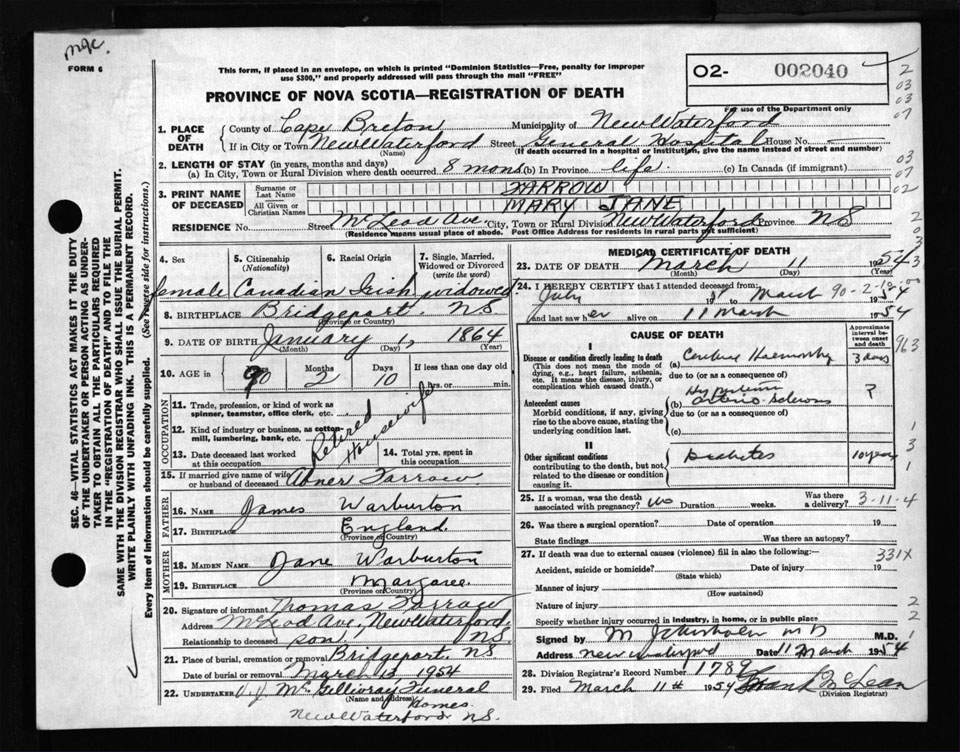 mgc.
FORM 6
This form, if placed in an envelope, on which is printed "Dominion Statistics—Free, penalty for improper
use $300," and properly addressed will pass through the mail "FREE"
02- 002040
For use of the Department only
PROVINCE OF NOVA SCOTIA—REGISTRATION OF DEATH
1. PLACE OF DEATH
County of Cape Breton Municipality of New Waterford
If in City or Town New Waterford Street General Hospital House No. -
(Name) (If death occurred in a hospital or institution, give the name instead of street and number)
2. LENGTH OF STAY (in years, months and days)
(a) In City, Town or Rural Division where death occurred 8 mons (b) In Province life. (c) In Canada (if immigrant)
3. PRINT NAME OF DECEASED
Surname or Last Name FARROW
All Given or Christian Names MARY JANE
RESIDENCE No. Street McLeod Ave. City, Town or Rural Division New Waterford Province NS
(Residence means usual place of abode. Post Office Address for residents in rural parts not sufficient)
4. Sex
5. Citizenship (Nationality)
6. Racial Origin
7. Single, Married, Widowed or Divorced (write the word)
Female Canadian Irish widowed.
8. BIRTHPLACE Bridgeport, NS
(Province or Country)
9. DATE OF BIRTH January 1, 1864
(Month) (Day) (Year)
10. AGE in Years Months Days If less than one day old
90 2 10 hrs. or min.
OCCUPATION
11. Trade, profession, or kind of work as spinner, teamster, office clerk, etc.
12. Kind of industry or business, as cotton-mill, lumbering, bank, etc.
Retired Housewife
13. Date deceased last worked at this occupation
14. Total yrs. spent in this occupation
15. If married give name of wife or husband of deceased Abner Farrow
FATHER
16. Name James Warburton
17. Birthplace England
(Province or Country)
MOTHER
18. MAIDEN NAME Jane Warburton
19. BIRTHPLACE Margaree.
(Province or Country)
20. Signature of informant Thomas Farrow
Address McLeod Ave., New Waterford,
Relationship to deceased son, NS.
21. Place of burial, cremation or removal Bridgeport, NS.
Date of burial or removal March 13 1954
22. UNDERTAKER McGillivray Funeral
(Name and address) Homes.
New Waterford NS.
MEDICAL CERTIFICATE OF DEATH
23. DATE OF DEATH March 11 1954
(Month) (Day) (Year)
24. I HEREBY CERTIFY that I attended deceased from:
July to March 90-2-10 1954
and last saw her alive on 11 March 1954
CAUSE OF DEATH
Approximate interval between onset and death
I
Disease or condition directly leading to death
(This does not mean the mode of dying, e.g., heart failure, asthenia, etc. It means the disease, injury, or complication which caused death.)
(a) Cerebral Haemorrhage 3 days
due to (or as a consequence of)
Antecedent causes
Morbid conditions, if any, giving rise to the above cause, stating the underlying condition last.
Hypertension
(b) arterio-sclerosis ?
due to (or as a consequence of)
(c)
II
Other significant conditions
contributing to the death, but not related to the disease or condition causing it.
Diabetes 10 years
25. If a woman, was the death associated with pregnancy? no Duration weeks. Was there a delivery? 3-11-4
26. Was there a surgical operation? Date of operation 19
State findings Was there an autopsy?
27. If death was due to external causes (violence) fill in also the following: 331X
Accident, suicide or homicide? Date of injury 19
(State which)
Manner of injury
(How sustained)
Nature of injury
Specify whether injury occurred in industry, in home, or in public place
Signed by M MD M.D.
Address New Waterford Date 11 March 1954
28. Division Registrar's Record Number 1789
29. Filed March 11th 1954 Frank McLean
(Division Registrar)
SEC. 46—VITAL STATISTICS ACT MAKES IT THE DUTY
OF THE UNDERTAKER OR PERSON ACTING AS UNDER-
TAKER TO OBTAIN ALL THE PARTICULARS REQUIRED
IN THE "REGISTRATION OF DEATH" AND TO FILE THE
SAME WITH THE DIVISION REGISTRAR WHO SHALL ISSUE THE BURIAL PERMIT.
WRITE PLAINLY WITH UNFADING INK. THIS IS A PERMANENT RECORD.
Every item of information should be carefully supplied. (See reverse side for instructions.)
2
03
03
07
03
07
02
2
0
3
3
963
1
3
1
2
2